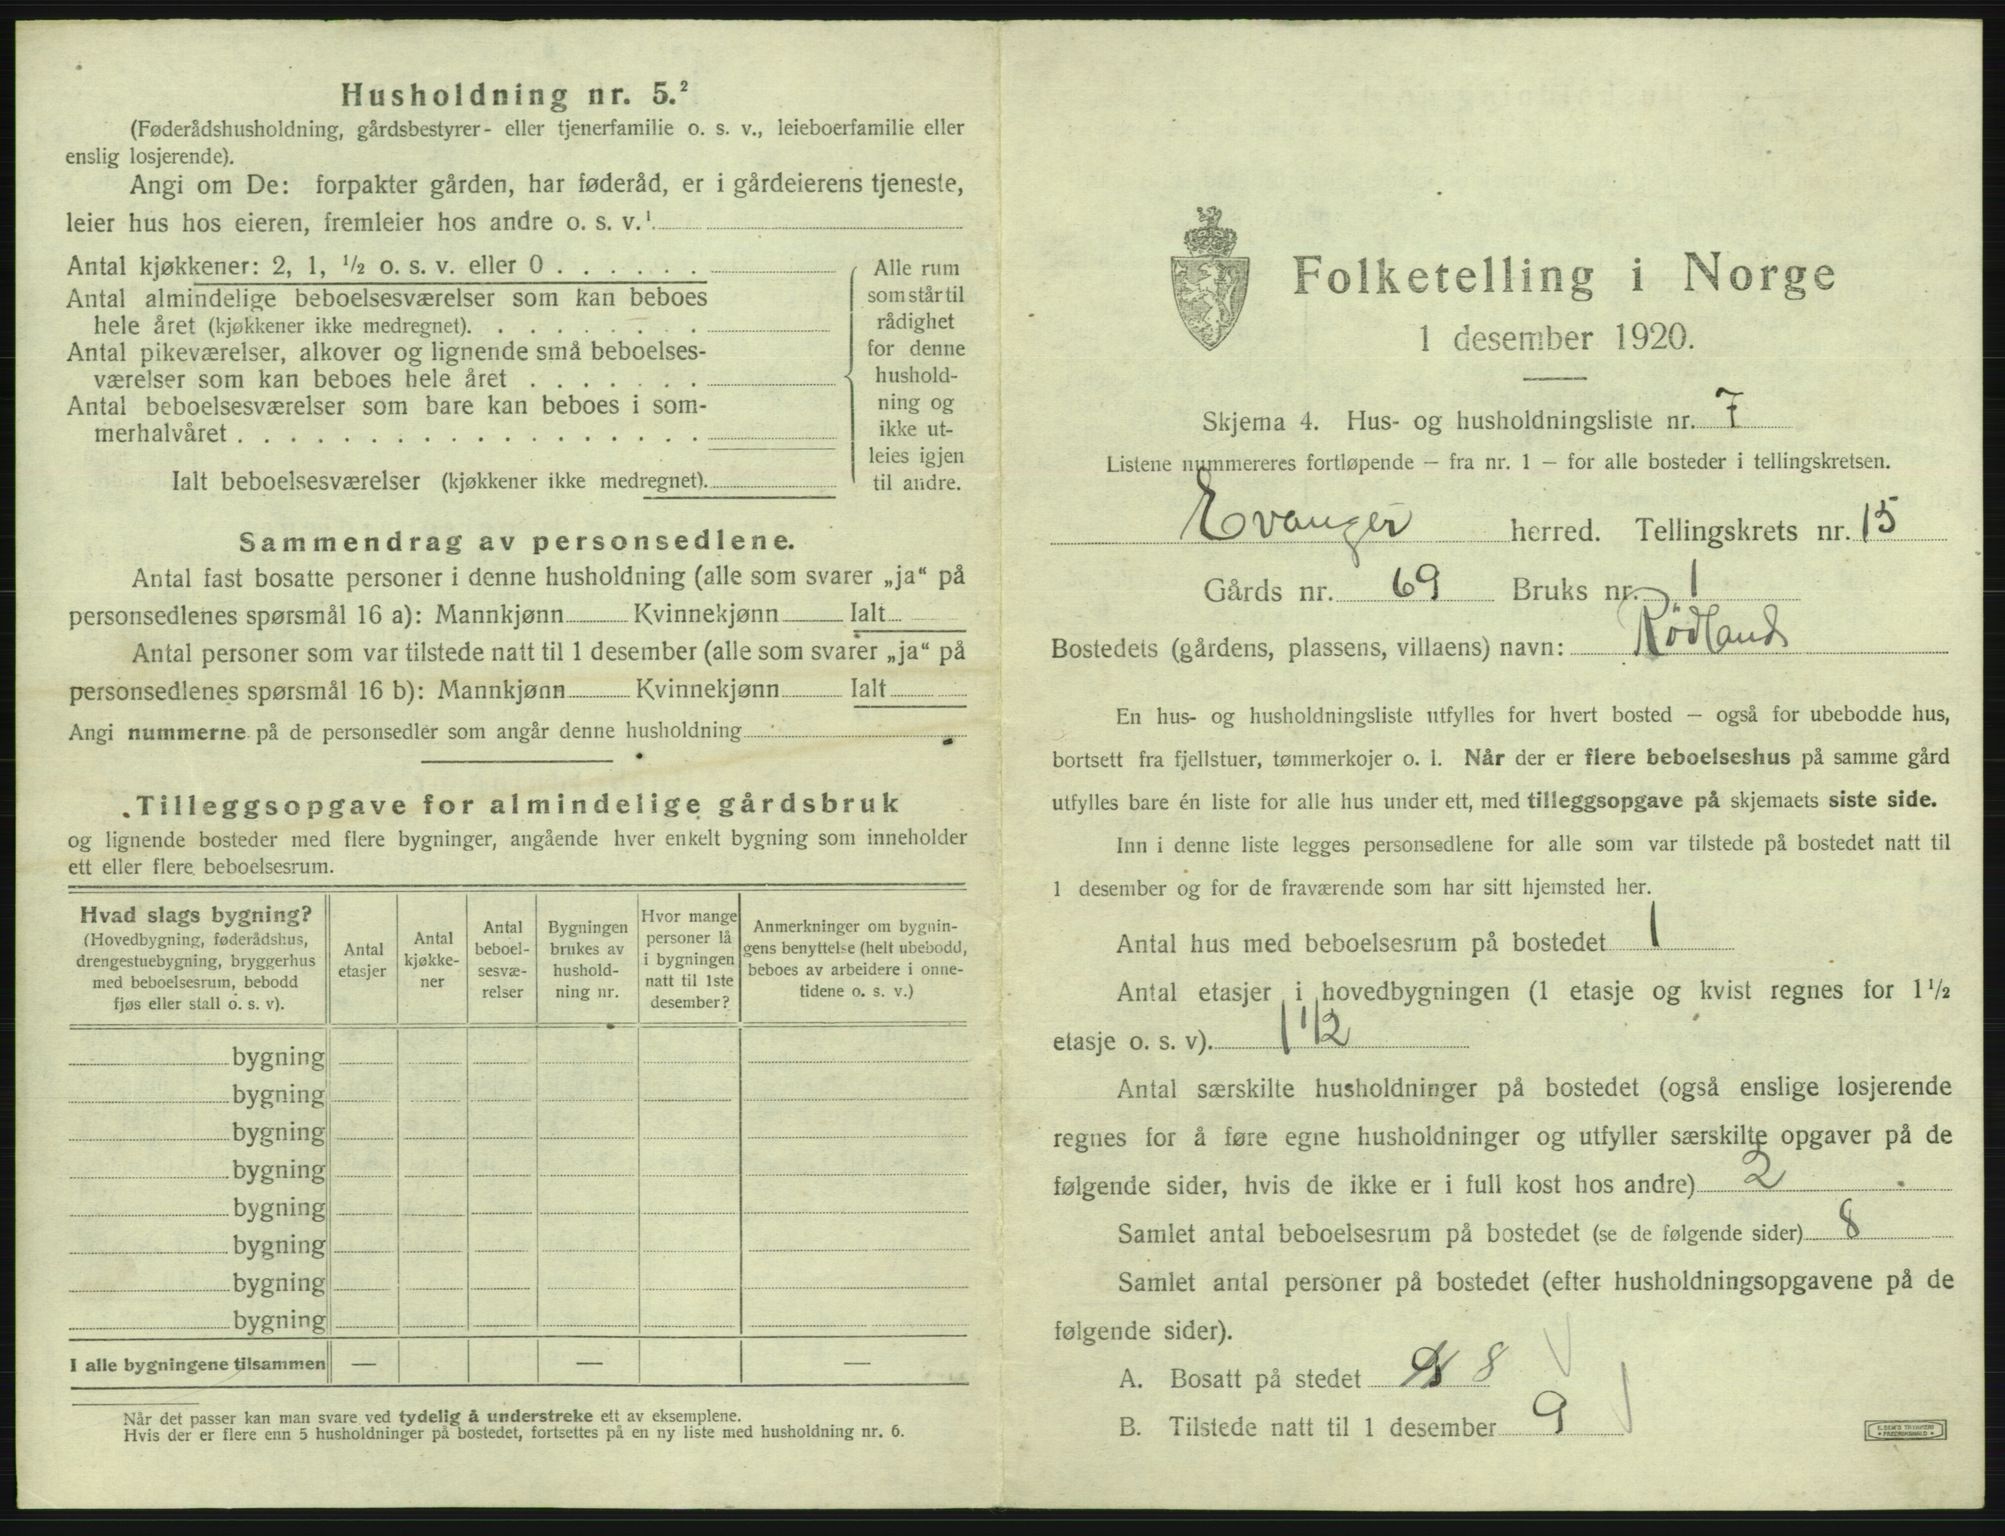 Husholdning nr. 5.²
(Føderådshusholdning, gårdsbestyrer- eller tjenerfamilie o. s. v., leieboerfamilie eller
enslig losjerende).
Angi om De: forpakter gården, har føderåd, er i gårdeierens tjeneste,
leier hus hos eieren, fremleier hos andre o. s. v.¹
Antal kjøkkener: 2, 1, ½ o. s. v. eller 0 . . . . . .
Antal almindelige beboelsesværelser som kan beboes
hele året (kjøkkener ikke medregnet). . . . . . . . .
Antal pikeværelser, alkover og lignende små beboelses-
værelser som kan beboes hele året . . . . . . .
Antal beboelsesværelser som bare kan beboes i som-
merhalvåret . . . . . . . . . . . . . . . . . .
Ialt beboelsesværelser (kjøkkener ikke medregnet).
Alle rum
som står til
rådighet
for denne
hushold-
ning og
ikke ut-
leies igjen
til andre.
Sammendrag av personsedlene.
Antal fast bosatte personer i denne husholdning (alle som svarer „ja“ på
personsedlenes spørsmål 16 a): Mannkjønn Kvinnekjønn Ialt
Antal personer som var tilstede natt til 1 desember (alle som svarer „ja“ på
personsedlenes spørsmål 16 b): Mannkjønn Kvinnekjønn Ialt
Angi nummerne på de personsedler som angår denne husholdning
Tilleggsopgave for almindelige gårdsbruk
og lignende bosteder med flere bygninger, angående hver enkelt bygning som inneholder
ett eller flere beboelsesrum.
Hvad slags bygning?
(Hovedbygning, føderådshus,
drengestuebygning, bryggerhus
med beboelsesrum, bebodd
fjøs eller stall o. s. v).
Antal
etasjer
Antal
kjøkke-
ner
Antal
beboel-
sesvæ-
relser
Bygningen
brukes av
hushold-
ning nr.
Hvor mange
personer lå
i bygningen
natt til 1ste
desember?
Anmerkninger om bygnin-
gens benyttelse (helt ubebodd,
beboes av arbeidere i onne-
tidene o. s. v.)
bygning
bygning
bygning
bygning
bygning
bygning
bygning
bygning
I alle bygningene tilsammen — — —
Når det passer kan man svare ved tydelig å understreke ett av eksemplene.
Hvis der er flere enn 5 husholdninger på bostedet, fortsettes på en ny liste med husholdning nr. 6.
Folketelling i Norge
1 desember 1920.
Skjema 4. Hus- og husholdningsliste nr. 7
Listene nummereres fortløpende – fra nr. 1 – for alle bosteder i tellingskretsen.
Evanger herred. Tellingskrets nr. 15
Gårds nr. 69 Bruks nr. 1
Bostedets (gårdens, plassens, villaens) navn: Rödland
En hus- og husholdningsliste utfylles for hvert bosted – også for ubebodde hus,
bortsett fra fjellstuer, tømmerkojer o. l. Når der er flere beboelseshus på samme gård
utfylles bare én liste for alle hus under ett, med tilleggsopgave på skjemaets siste side.
Inn i denne liste legges personsedlene for alle som var tilstede på bostedet natt til
1 desember og for de fraværende som har sitt hjemsted her.
Antal hus med beboelsesrum på bostedet 1
Antal etasjer i hovedbygningen (1 etasje og kvist regnes for 1½
etasje o. s. v). 1 1/2
Antal særskilte husholdninger på bostedet (også enslige losjerende
regnes for å føre egne husholdninger og utfyller særskilte opgaver på de
følgende sider, hvis de ikke er i full kost hos andre) 2
Samlet antal beboelsesrum på bostedet (se de følgende sider) 8
Samlet antal personer på bostedet (efter husholdningsopgavene på de
følgende sider).
A. Bosatt på stedet 8
B. Tilstede natt til 1 desember 9